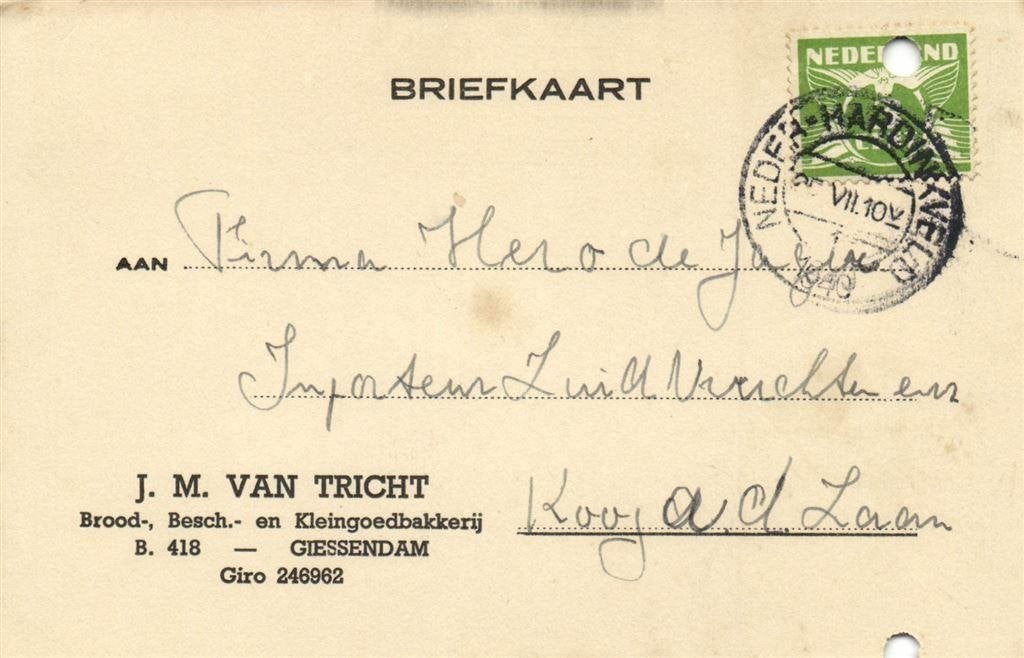 BRIEFKAART
NEDERLAND
NEDER-HARDINXVELD
VII.10
1940
AAN Firma Hero de Jager
Inporteur Zuid Vruchten enz
Koog a.d. Zaan
J. M. VAN TRICHT
Brood-, Besch.- en Kleingoedbakkerij
B. 418 — GIESSENDAM
Giro 246962